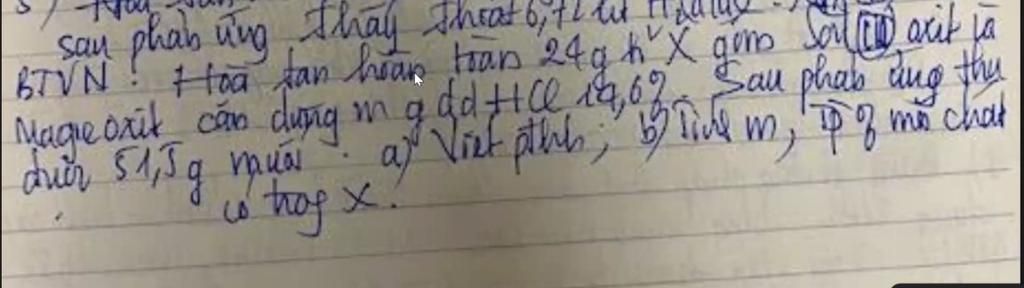 sau phản ứng thấy thoát 6,72 lít
BTVN: Hoà tan hoàn toàn 24g h² X gồm Sắt (III) oxit và
Magie oxit cần dùng m g dd HCl 14,6%. Sau phản ứng thu
được 51,5g muối. a) Viết pthh; b) Tính m, % mỗi chất
có trog X.